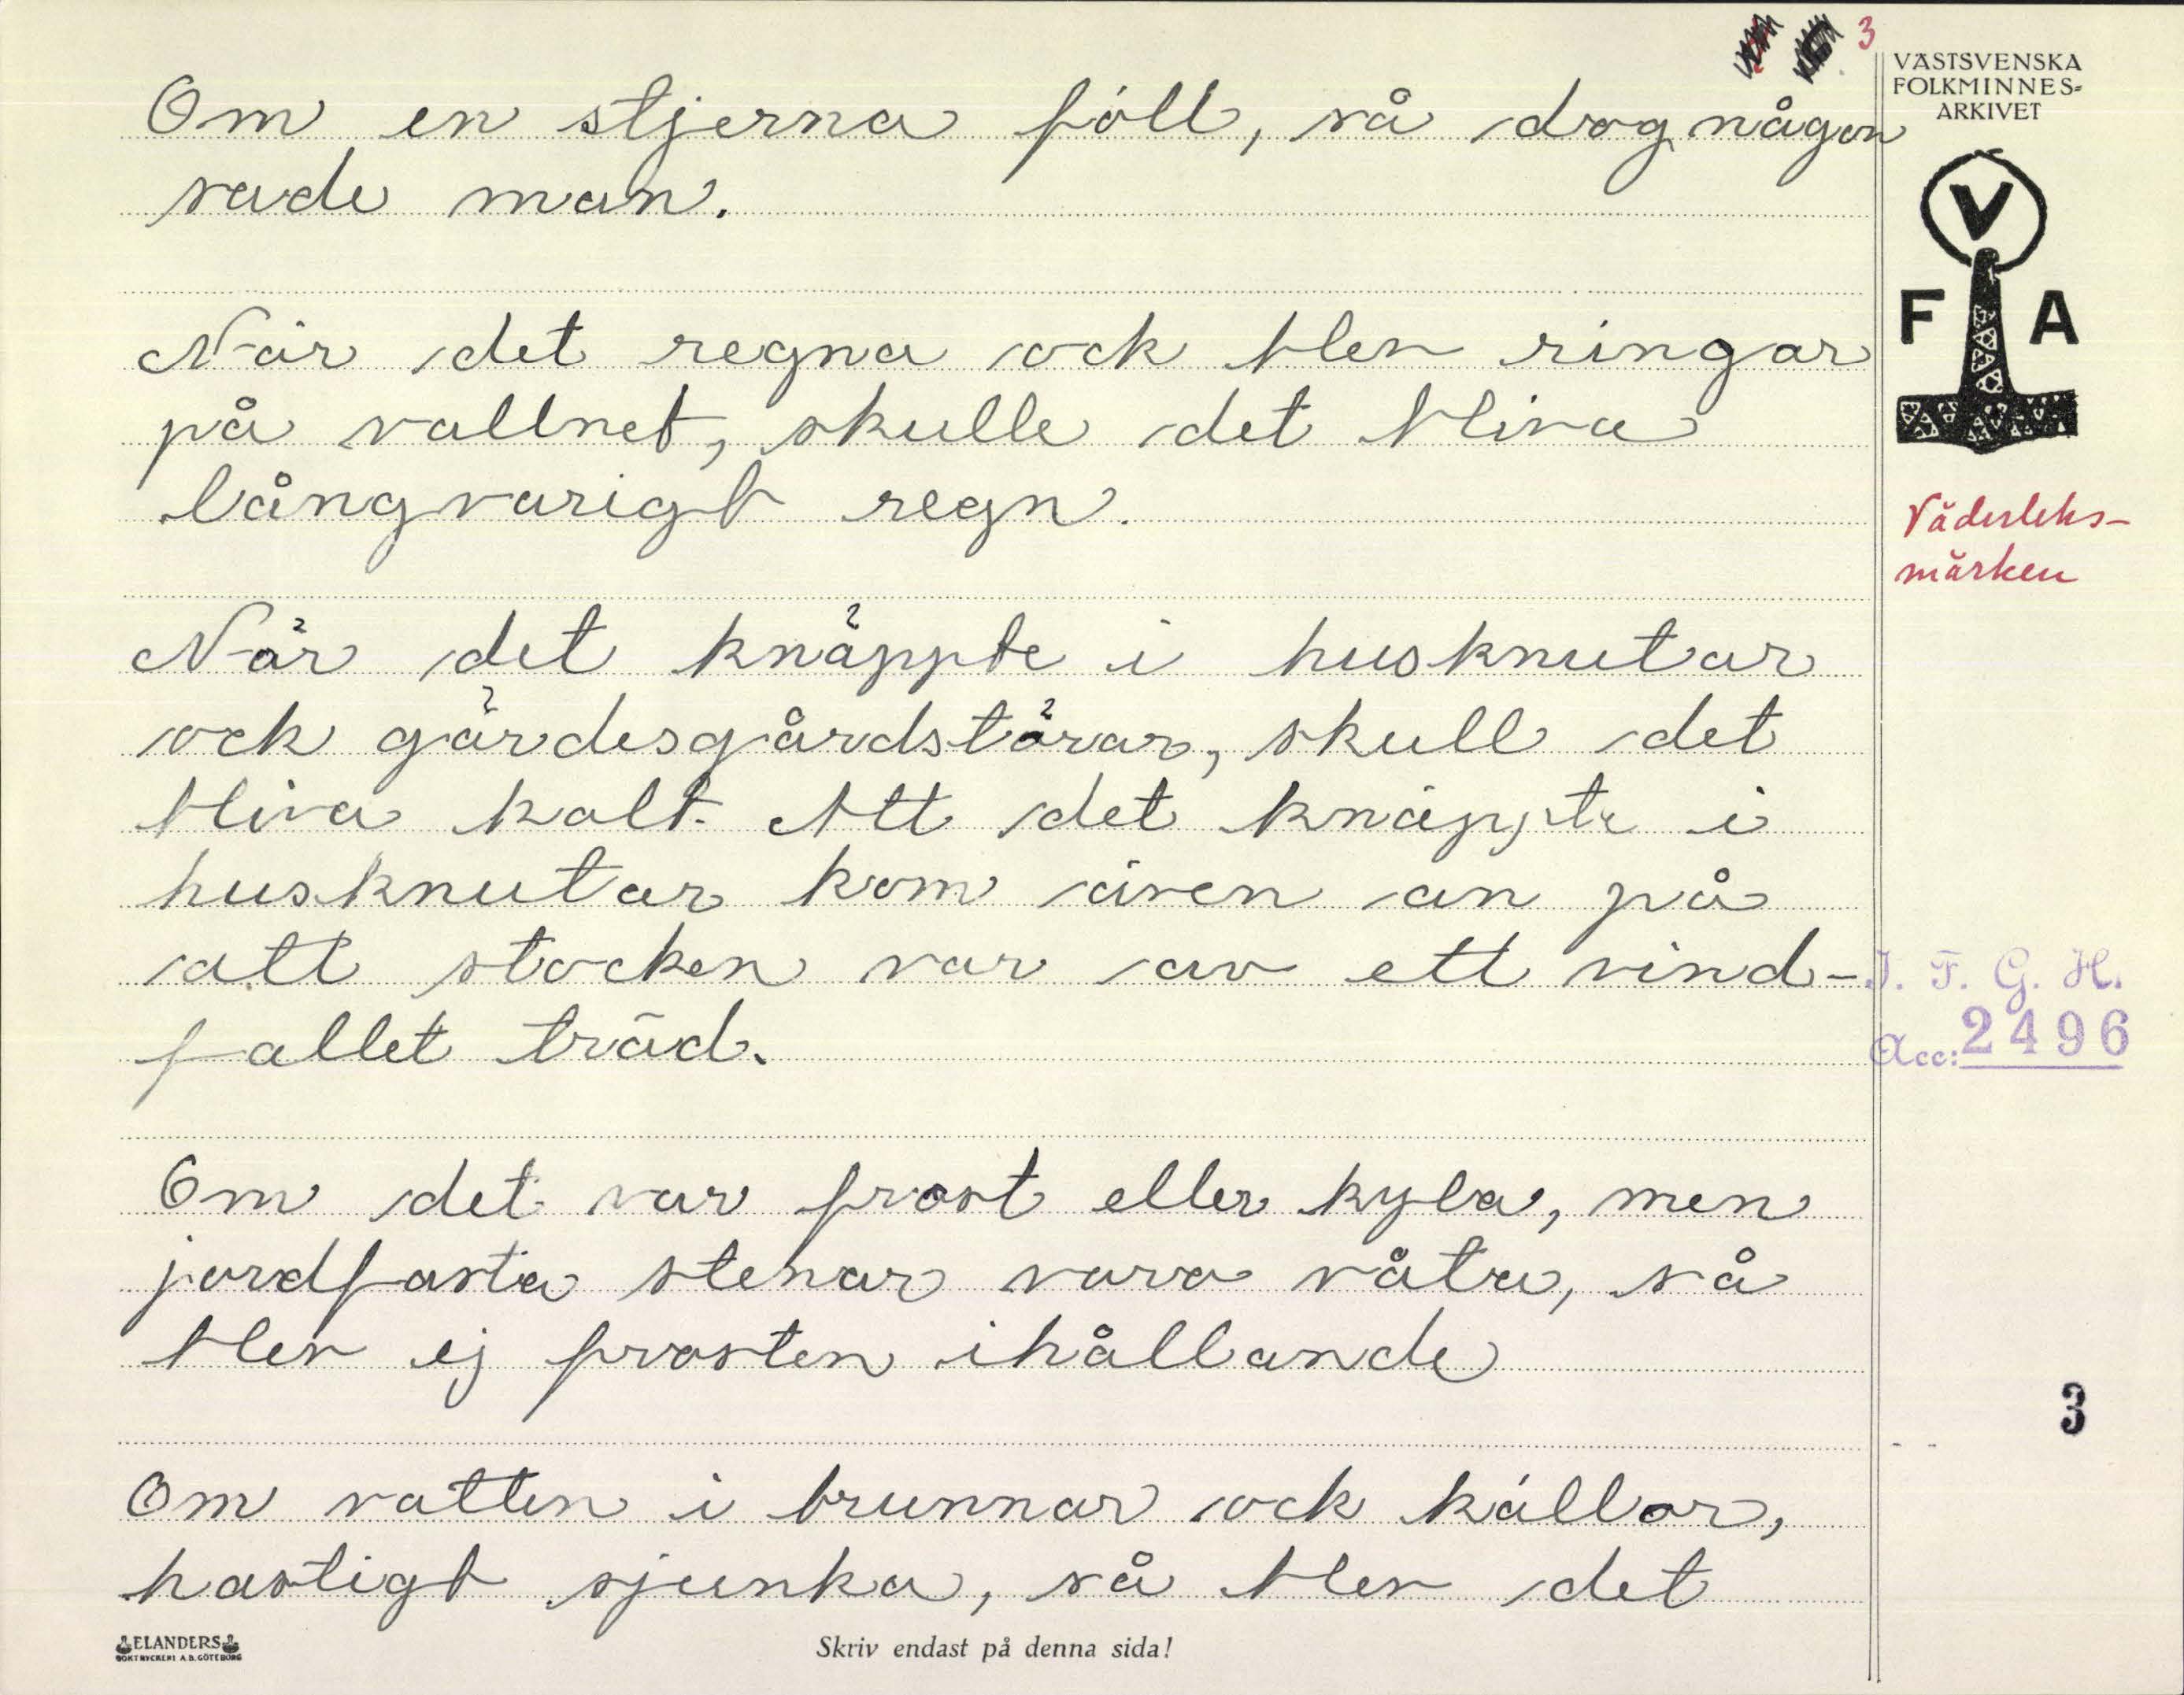 3
VÄSTSVENSKA
FOLKMINNES-
ARKIVET
V
F A
Om en stjerna föll, så dog någon
sade man.
När det regna ock blev ringar
på vattnet, skulle det bliva
långvarigt regn.
Väderleks-
märken
När det knäppte i husknutar
ock gärdesgårdstörar, skull det
bliva kalt. Att det knäppte i
husknutar kom även an på
att stocken var av ett vind-
fallet träd.
I. F. G. H.
Acc: 2496
Om det var frost eller kyla, men
jordfasta stenar voro våta, så
blev ej frosten ihållande
3
Om vatten i brunnar ock källor,
hastigt sjunka, så blev det
ELANDERS
BOKTRYCKERI A.B. GÖTEBORG
Skriv endast på denna sida!